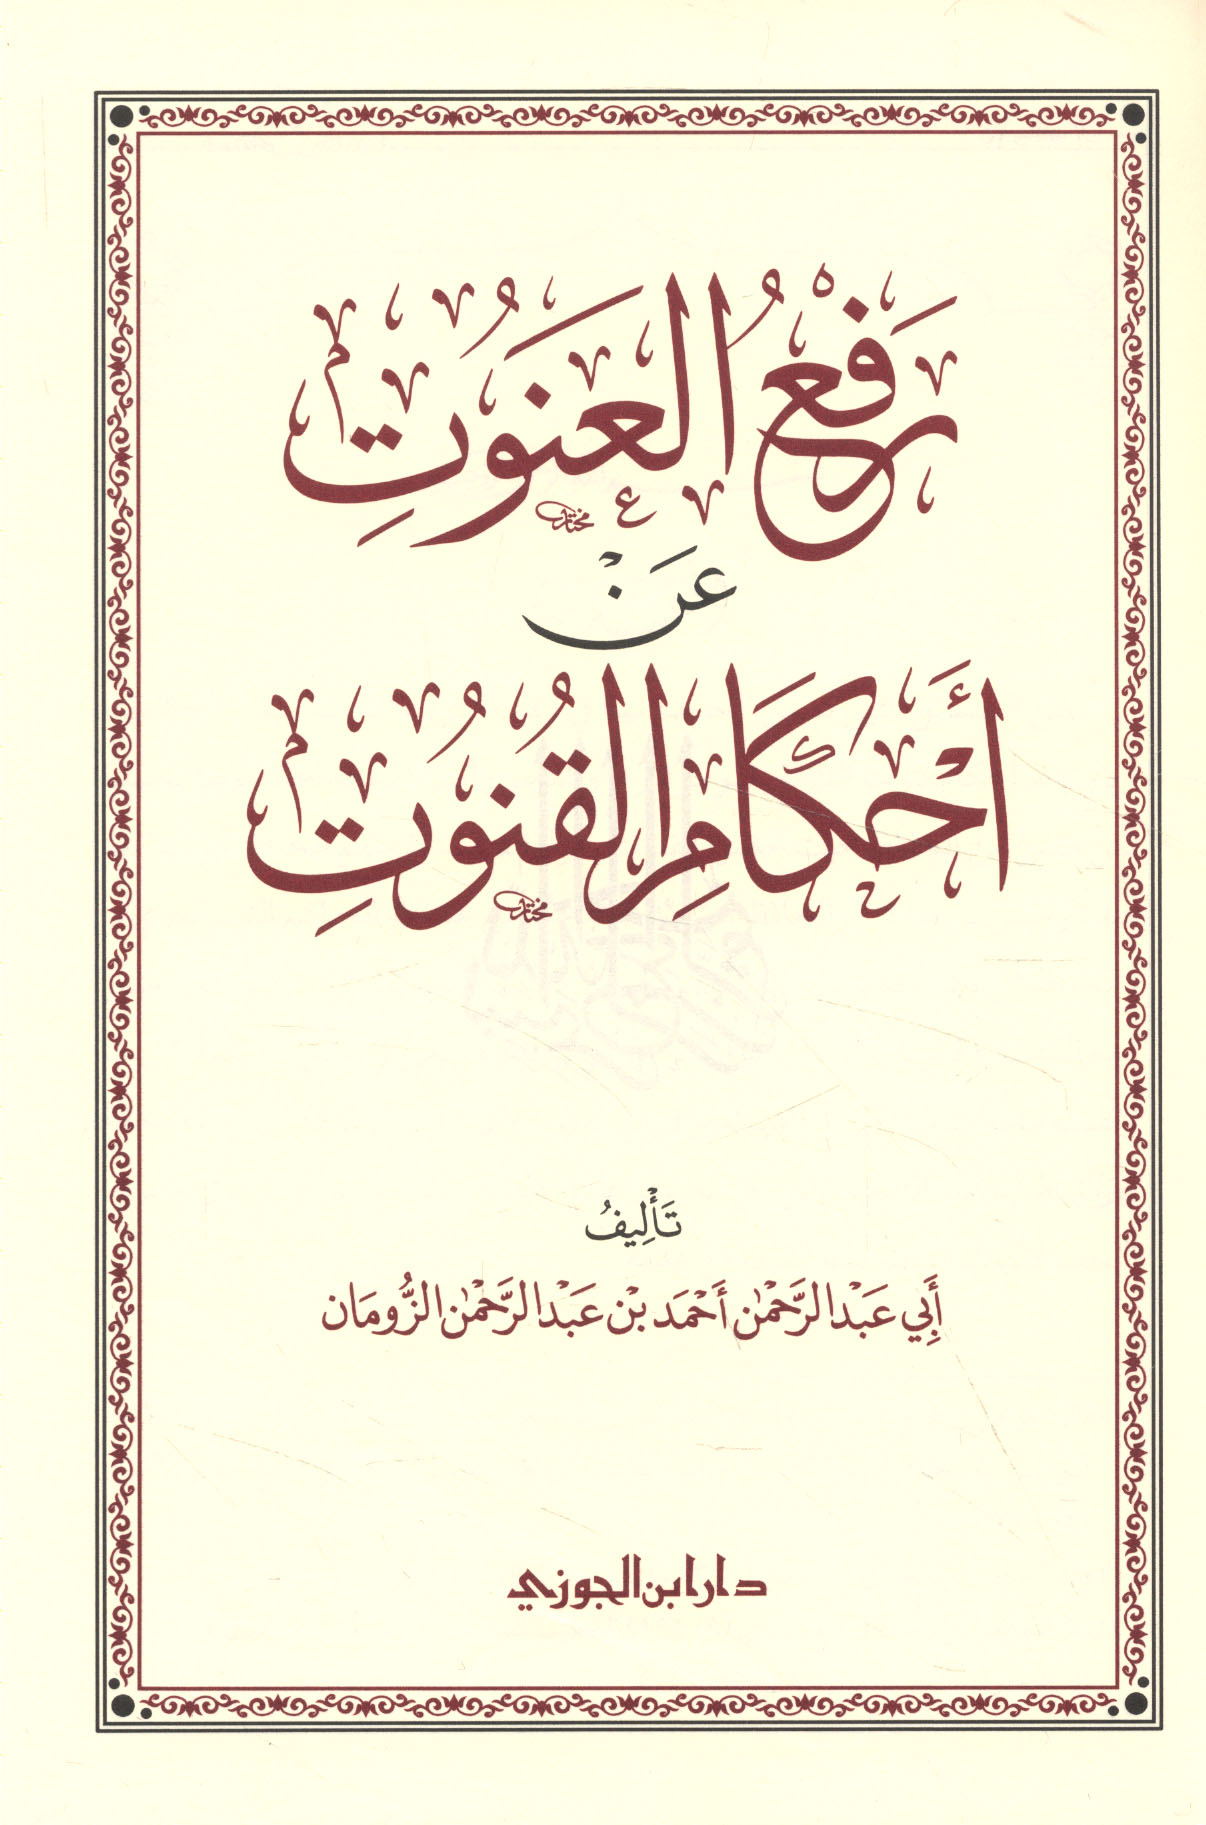 رَفْعُ العَنَوُتِ
عَنْ
أَحْكَامِ القُنُوُتِ
تَأْلِيفُ
أَبِي عَبْدِ الرَّحْمٰن أَحْمَد بْن عَبْدِ الرَّحْمٰن الزُّومَان
دار ابن الجوزي